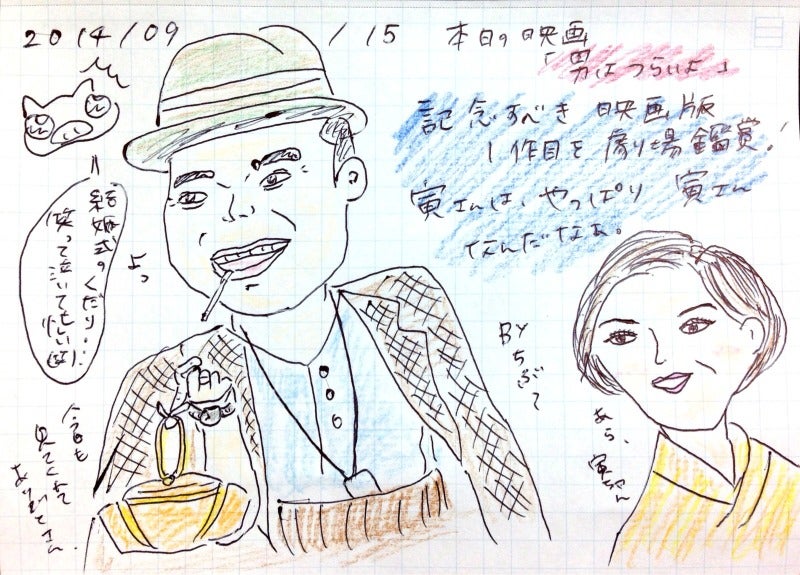 2014/09/15
本日の映画
「男はつらいよ」
記念すべき 映画版
1作目を 劇場鑑賞!
寅さんは、やっぱり 寅さん
なんだなぁ。
結婚式のくだり…
笑って泣いて
よっ
BY ちぶて
あら、寅ちゃん
今日も
見てくれて
ありがとさん。